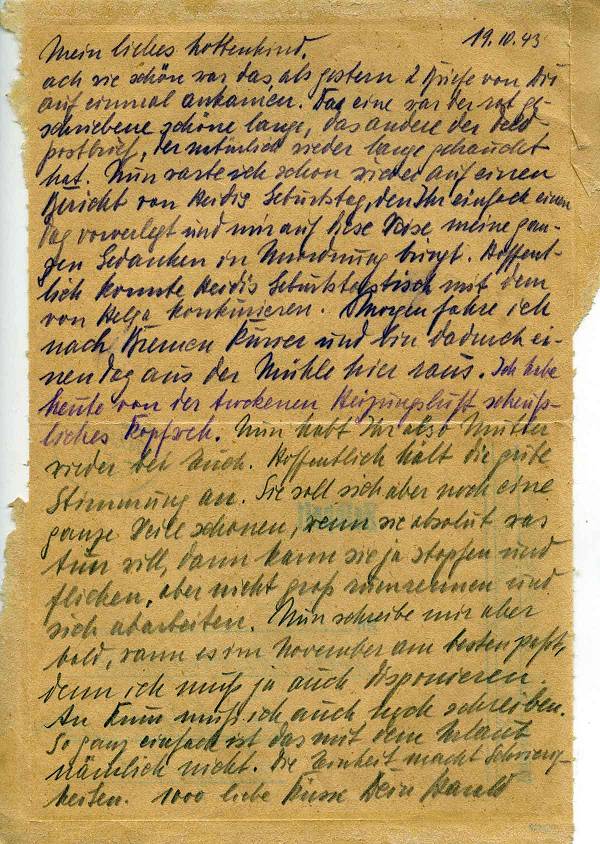 19.10.43
Mein liebes Mottenkind,
ach wie schön war das als gestern 2 Briefe von Dir
auf einmal ankamen. Das eine war der rot ge-
schriebene schöne lange, das andere der Feld
postbrief, der natürlich wieder lange gebraucht
hat. Nun warte ich schon wieder auf einen
Bericht von Heidis Geburtstag, den Ihr einfach einen
Tag vorverlegt und mir auf diese Weise meine gan-
zen Gedanken in Unordnung bringt. Hoffent-
lich konnte Heidis Geburtstagstisch mit dem
von Helga konkurieren. Morgen fahre ich
nach Bremen Kurier und bin dadurch ei-
nen Tag aus der Mühle hier raus. Ich habe
heute von der trockenen Heizungsluft scheuß-
liches Kopfweh. Nun habt Ihr also Mutter
wieder bei Euch. Hoffentlich hält die gute
Stimmung an. Sie soll sich aber noch eine
ganze Weile schonen, wenn sie absolut was
tun will, dann kann sie ja stopfen und
flicken, aber nicht groß rumrennen und
sich abarbeiten. Nun schreibe mir aber
bald, wann es im November am besten paßt,
denn ich muß ja auch disponieren.
An muß ich auch noch schreiben.
So ganz einfach ist das mit dem Urlaub
nämlich nicht. Die Einheit macht Schwierig-
keiten. 1000 liebe Küsse Dein Harald